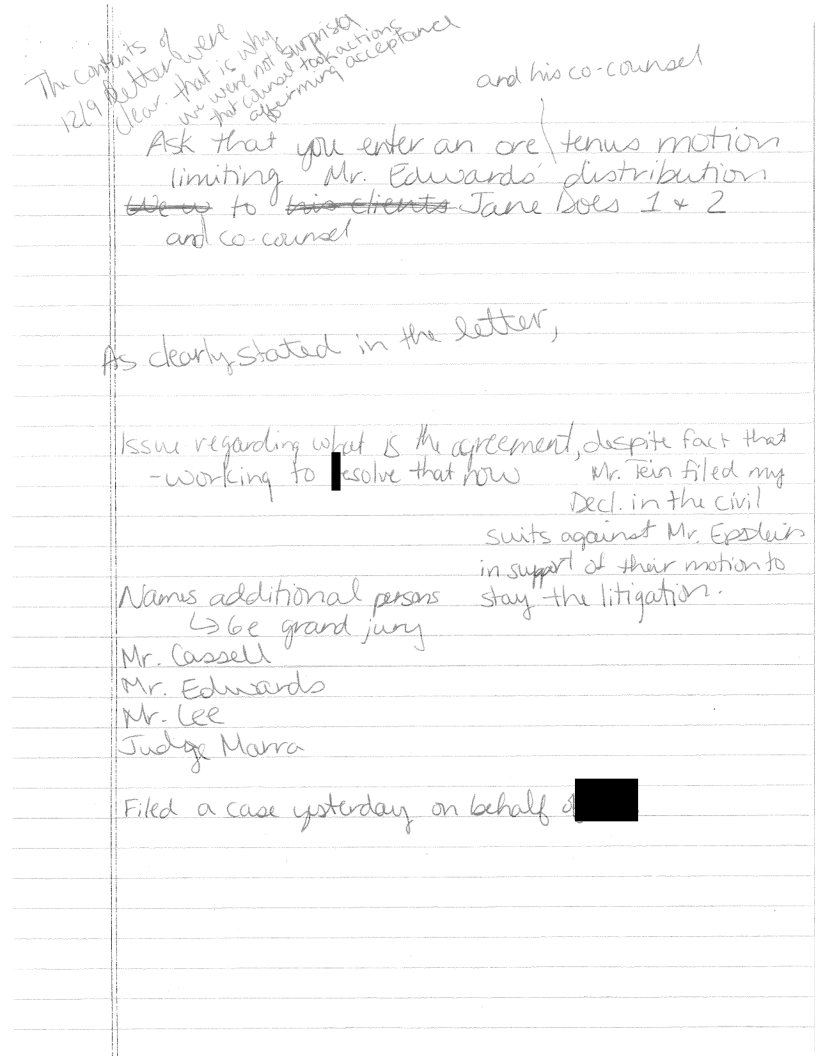 The contents of
12/9 letter were
clear. that is why
we were not surprised
that counsel took actions
affirming acceptance
and his co-counsel
Ask that you enter an ore tenus motion
limiting Mr. Edwards' distribution
We w to his clients Jane Does 1 & 2
and co-counsel
As clearly stated in the letter,
Issue regarding what is the agreement, despite fact that
- working to resolve that now
Mr. Tein filed my
Decl. in the civil
suits against Mr. Epstein
in support of their motion to
stay the litigation.
Names additional persons
↳ 6e grand jury
Mr. Cassell
Mr. Edwards
Mr. Lee
Judge Marra
Filed a case yesterday on behalf of